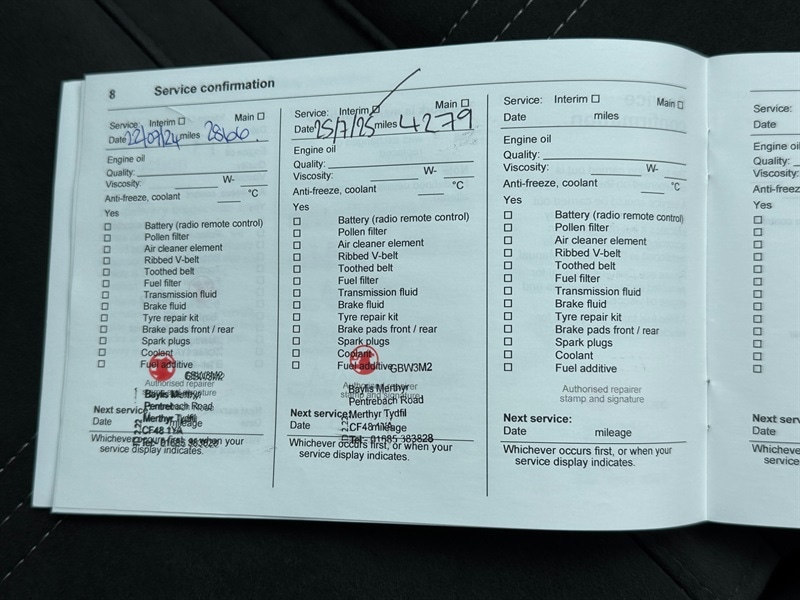 8 Service confirmation
Service: Interim ☐ Main ☐
Date 22/09/24 miles 2866
Engine oil
Quality:
Viscosity: W-
Anti-freeze, coolant °C
Yes
☐ Battery (radio remote control)
☐ Pollen filter
☐ Air cleaner element
☐ Ribbed V-belt
☐ Toothed belt
☐ Fuel filter
☐ Transmission fluid
☐ Brake fluid
☐ Tyre repair kit
☐ Brake pads front / rear
☐ Spark plugs
☐ Coolant
☐ Fuel additive
GBW3M2
Authorised repairer
Baylis Merthyr
Pentrebach Road
Next service:
Merthyr Tydfil
Date mileage
CF48 1YA
Tel:- 01685 383828
Whichever occurs first, or when your
service display indicates.
Service: Interim ☐ Main ☐
Date 25/7/25 miles 4279
Engine oil
Quality:
Viscosity: W-
Anti-freeze, coolant °C
Yes
☐ Battery (radio remote control)
☐ Pollen filter
☐ Air cleaner element
☐ Ribbed V-belt
☐ Toothed belt
☐ Fuel filter
☐ Transmission fluid
☐ Brake fluid
☐ Tyre repair kit
☐ Brake pads front / rear
☐ Spark plugs
☐ Coolant
☐ Fuel additive
GBW3M2
Authorised repairer
stamp and signature
Baylis Merthyr
Pentrebach Road
Next service:
Merthyr Tydfil
Date mileage
CF48 1YA
Tel:- 01685 383828
Whichever occurs first, or when your
service display indicates.
Service: Interim ☐ Main ☐
Date miles
Engine oil
Quality:
Viscosity: W-
Anti-freeze, coolant °C
Yes
☐ Battery (radio remote control)
☐ Pollen filter
☐ Air cleaner element
☐ Ribbed V-belt
☐ Toothed belt
☐ Fuel filter
☐ Transmission fluid
☐ Brake fluid
☐ Tyre repair kit
☐ Brake pads front / rear
☐ Spark plugs
☐ Coolant
☐ Fuel additive
Authorised repairer
stamp and signature
Next service:
Date mileage
Whichever occurs first, or when your
service display indicates.
Service:
Date
Engine oil
Quality:
Viscosity:
Anti-freeze
Yes
Date
Whichever
service